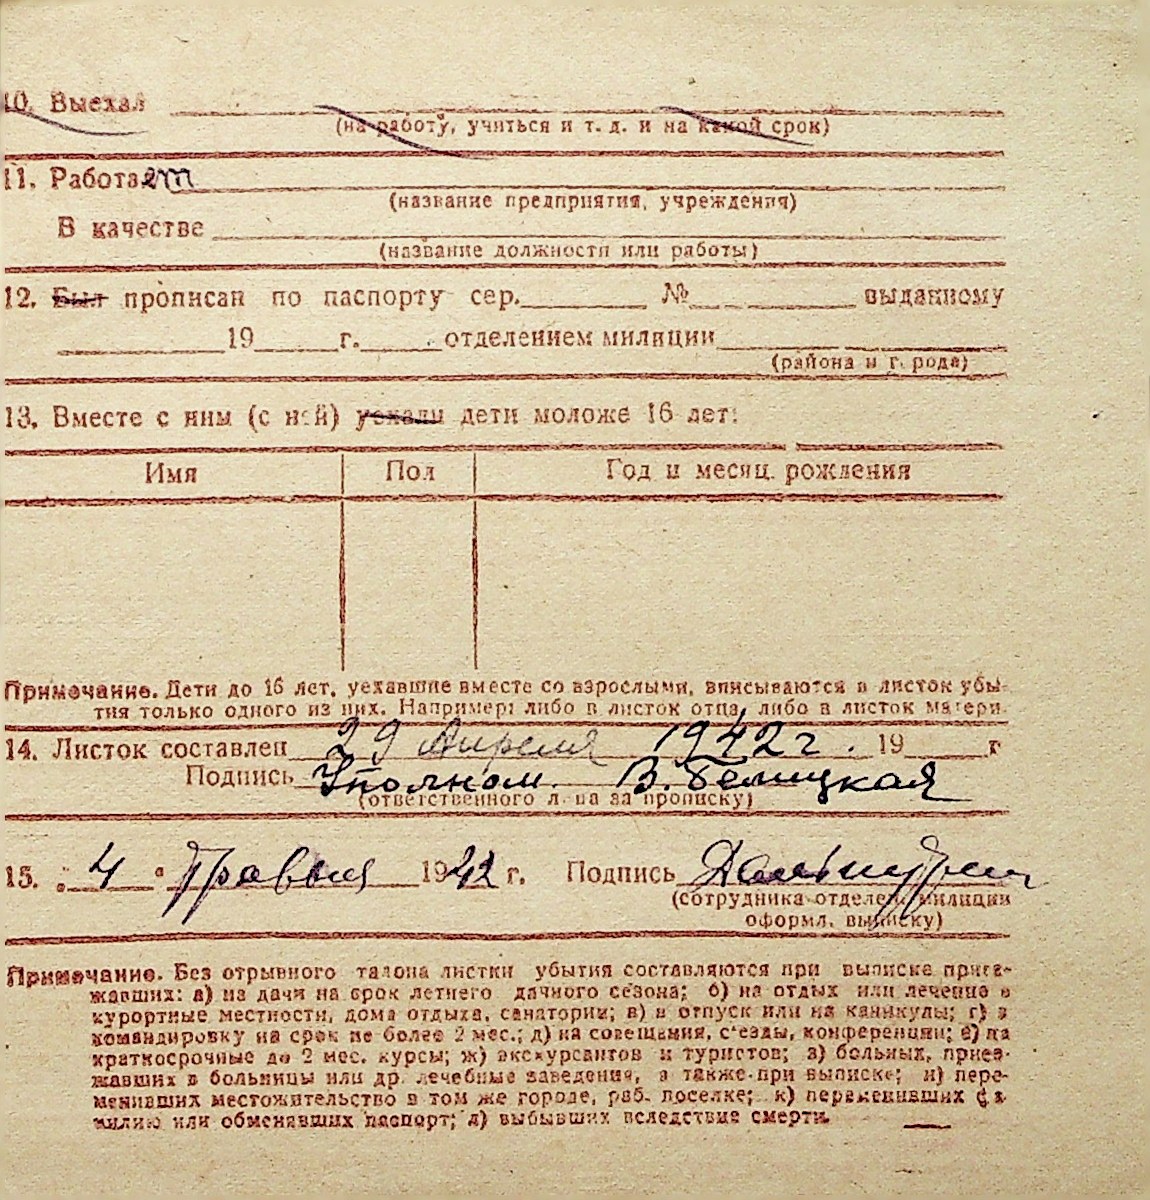 10. Выехал
(на работу, учиться и т. д. и на какой срок)
11. Работает
(название предприятия, учреждения)
В качестве
(название должности или работы)
12. Был прописан по паспорту сер. № выданному
19 г. отделением милиции
(района и города)
13. Вместе с ним (с ней) уехали дети моложе 16 лет:
Имя Пол Год и месяц рождения
Примечание. Дети до 16 лет, уехавшие вместе со взрослыми, вписываются в листок убы-
тия только одного из них. Например: либо в листок отца, либо в листок матери.
14. Листок составлен 29 Апреля 1942 г. 19 г
Подпись Уполном. В. Белицкая
(ответственного лица за прописку)
15. „ 4 “ Травня 1942 г. Подпись
(сотрудника отделен. милиции
оформл. выписку)
Примечание. Без отрывного талона листки убытия составляются при выписке приез-
жавших: а) из дачи на срок летнего дачного сезона; б) на отдых или лечение в
курортные местности, дома отдыха, санатории; в) в отпуск или на каникулы; г) в
командировку на срок не более 2 мес.; д) на совещания, с'езды, конференции; е) на
краткосрочные до 2 мес. курсы; ж) экскурсантов и туристов; з) больных, приез-
жавших в больницы или др. лечебные заведения, а также при выписке; и) пере-
менивших местожительство в том же городе, раб. поселке; к) переменивших фа-
милию или обменявших паспорт; л) выбывших вследствие смерти.